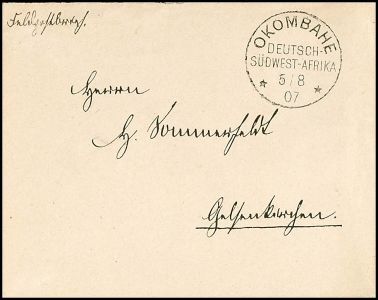 Feldpostbrief.
OKOMBAHE
DEUTSCH-
SÜDWEST-AFRIKA
* 5/8 *
07
Herrn
H. Sommerfeldt
Gelsenkirchen.